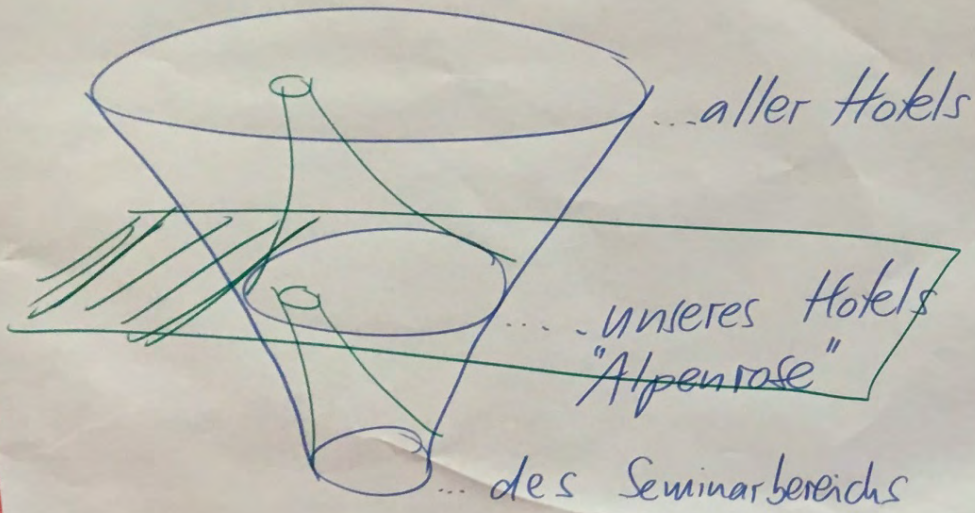 ...aller Hotels
.....unseres Hotels
"Alpenrose"
... des Seminarbereichs